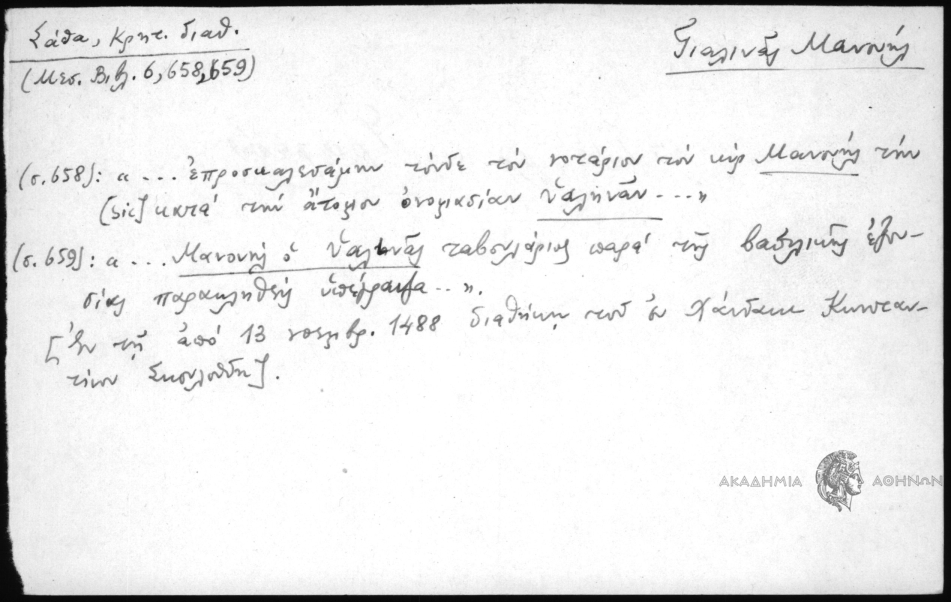 Σάθα, Κρητ. διαθ.
(Μεσ. Βιβλ. 6, 658, 659)
Γιαλινᾶς Μανουήλ
(σ. 658): « ... ἐπροσκαλεσάμην τόνδε τὸν νοτάριον τὸν κὺρ Μανουήλ τὴν
[sic] κατὰ τὴν ἄτομον ὀνομασίαν Ὑαληνᾶν ... »
(σ. 659): « ... Μανουὴλ ὁ Ὑαλινᾶς ταβουλάριος παρὰ τῆς βασιλικῆς ἐξου-
σίας παρακληθεὶς ὑπέγραψα .. ».
[Ἐν τῇ ἀπὸ 13 νοεμβρ. 1488 διαθήκῃ τοῦ ἐν Χάνδακι Κωνσταν-
τίνου]
ΑΚΑΔΗΜΙΑ ΑΘΗΝΩΝ